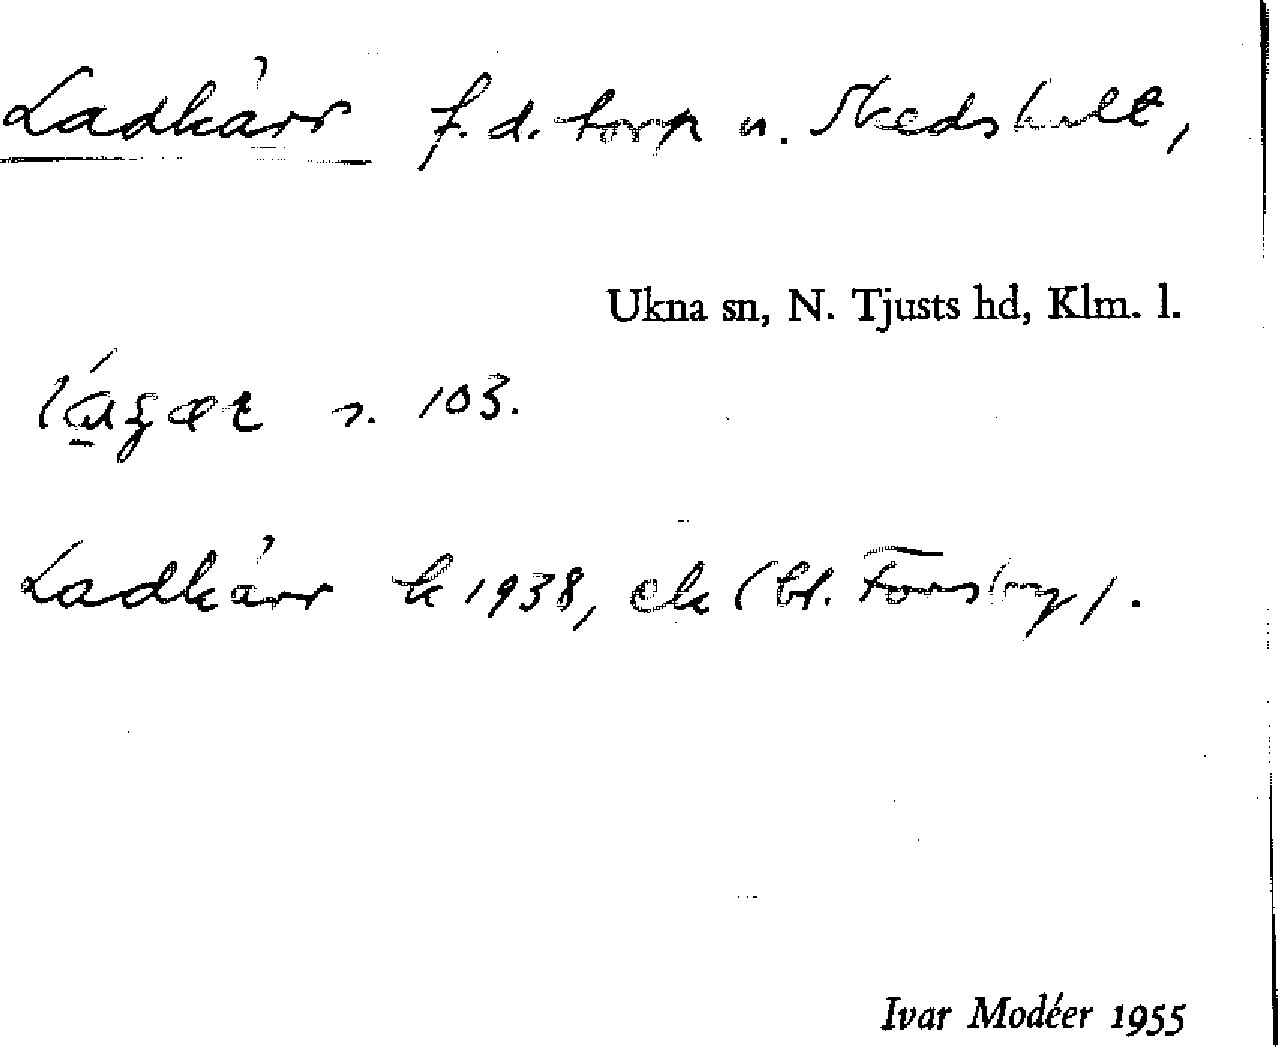 Ladkärr f.d. torp u. Skedshult,
Ukna sn, N. Tjusts hd, Klm. l.
s. 103.
Ladkärr k 1938, ek (bl. Forsby).
Ivar Modéer 1955